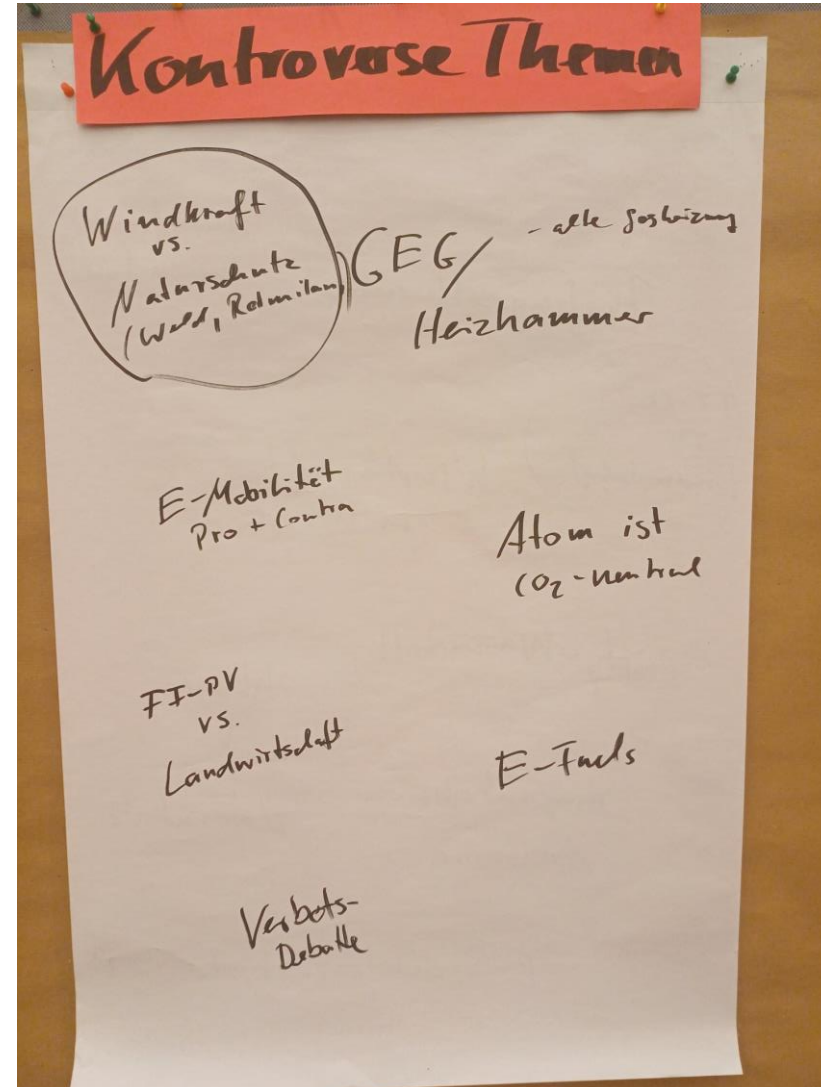 Kontroverse Themen
Windkraft
vs.
Naturschutz
(Wald, Rotmilan)
GEG/
- alte Gasheizung
Heizhammer
E-Mobilität
Pro + Contra
Atom ist
CO2-neutral
FF-PV
vs.
Landwirtschaft
E-Fuels
Verbots-
Debatte